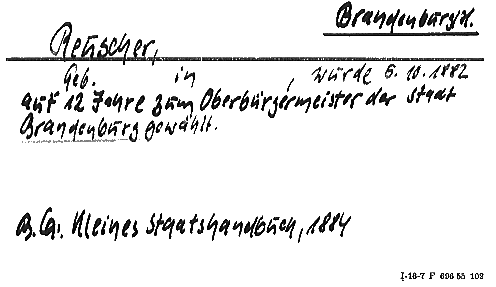 Brandenburg/H.
Reuscher,
Geb. in , wurde 6.10.1882
auf 12 Jahre zum Oberbürgermeister der Stadt
Brandenburg gewählt.
B.Qu. Kleines Staatshandbuch, 1884
I-16-7 F 696 55 103